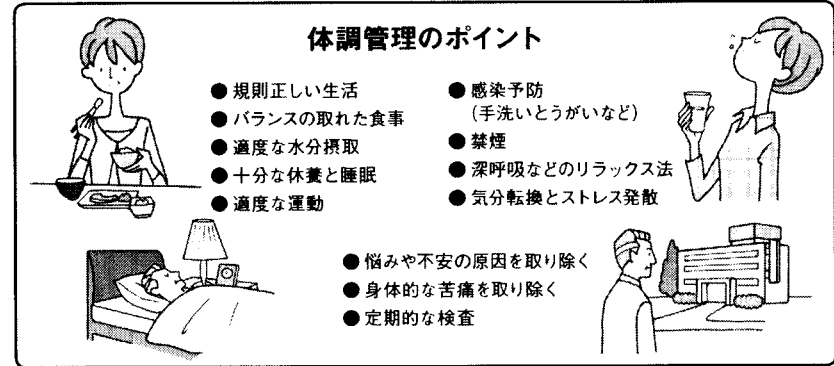 体調管理のポイント
● 規則正しい生活
● バランスの取れた食事
●適度な水分摂取
● 十分な休養と睡眠
● 適度な運動
● 感染予防
（手洗いとうがいなど）
● 禁煙
● 深呼吸などのリラックス法
● 気分転換とストレス発散
● 悩みや不安の原因を取り除く
● 身体的な苦痛を取り除く
● 定期的な検査